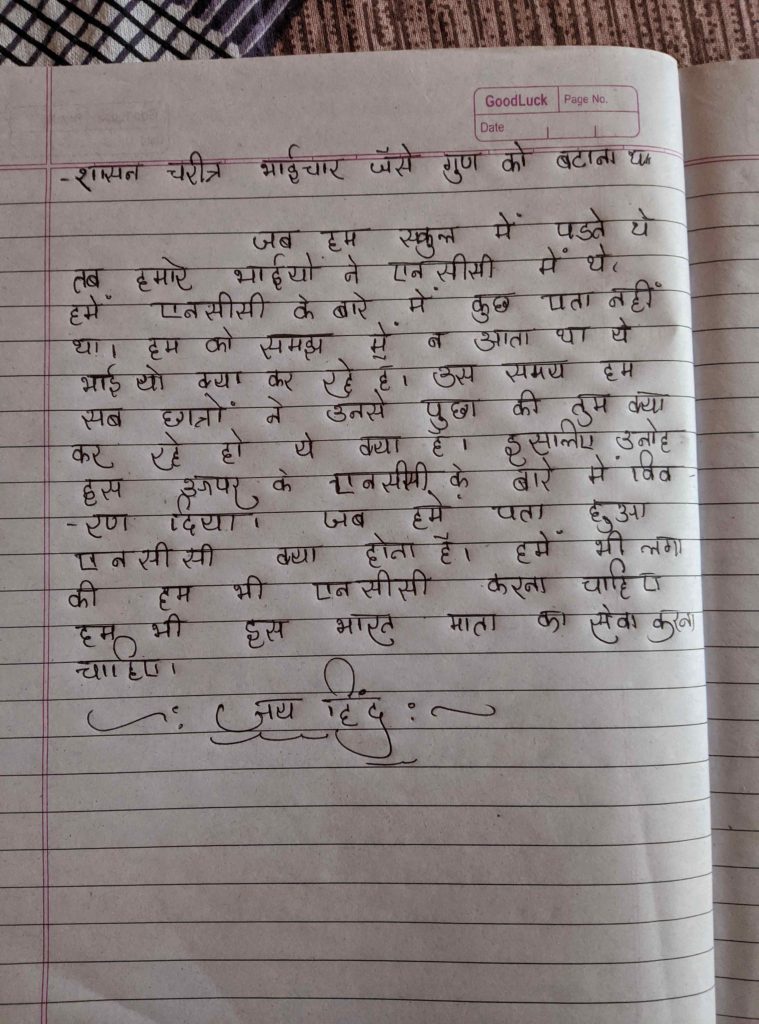 GoodLuck Page No.
Date
-शासन चरीत्र भाईचार जॅसे गुण को बटाना था
जब हम स्कुल में पडते थे
तब हमारे भाईयों ने एनसीसी में थे,
हमें एनसीसी के बारे में कुछ पता नहीं
था। हम को समझ में न आता था ये
भाई यो क्या कर रहे है। उस समय हम
सब छात्रों ने उनसे पुछा की तुम क्या
कर रहे हो ये क्या है। इसलिए उनोह
हस के एनसीसी के बारे में विव-
-रण दिया। जब हमें पता हुआ
एनसीसी क्या होता है। हमें भी लगा
की हम भी एनसीसी करना चाहिए
हम भी इस भारत माता का सेवा करना
चाहिए।
~: जय हिंद :~